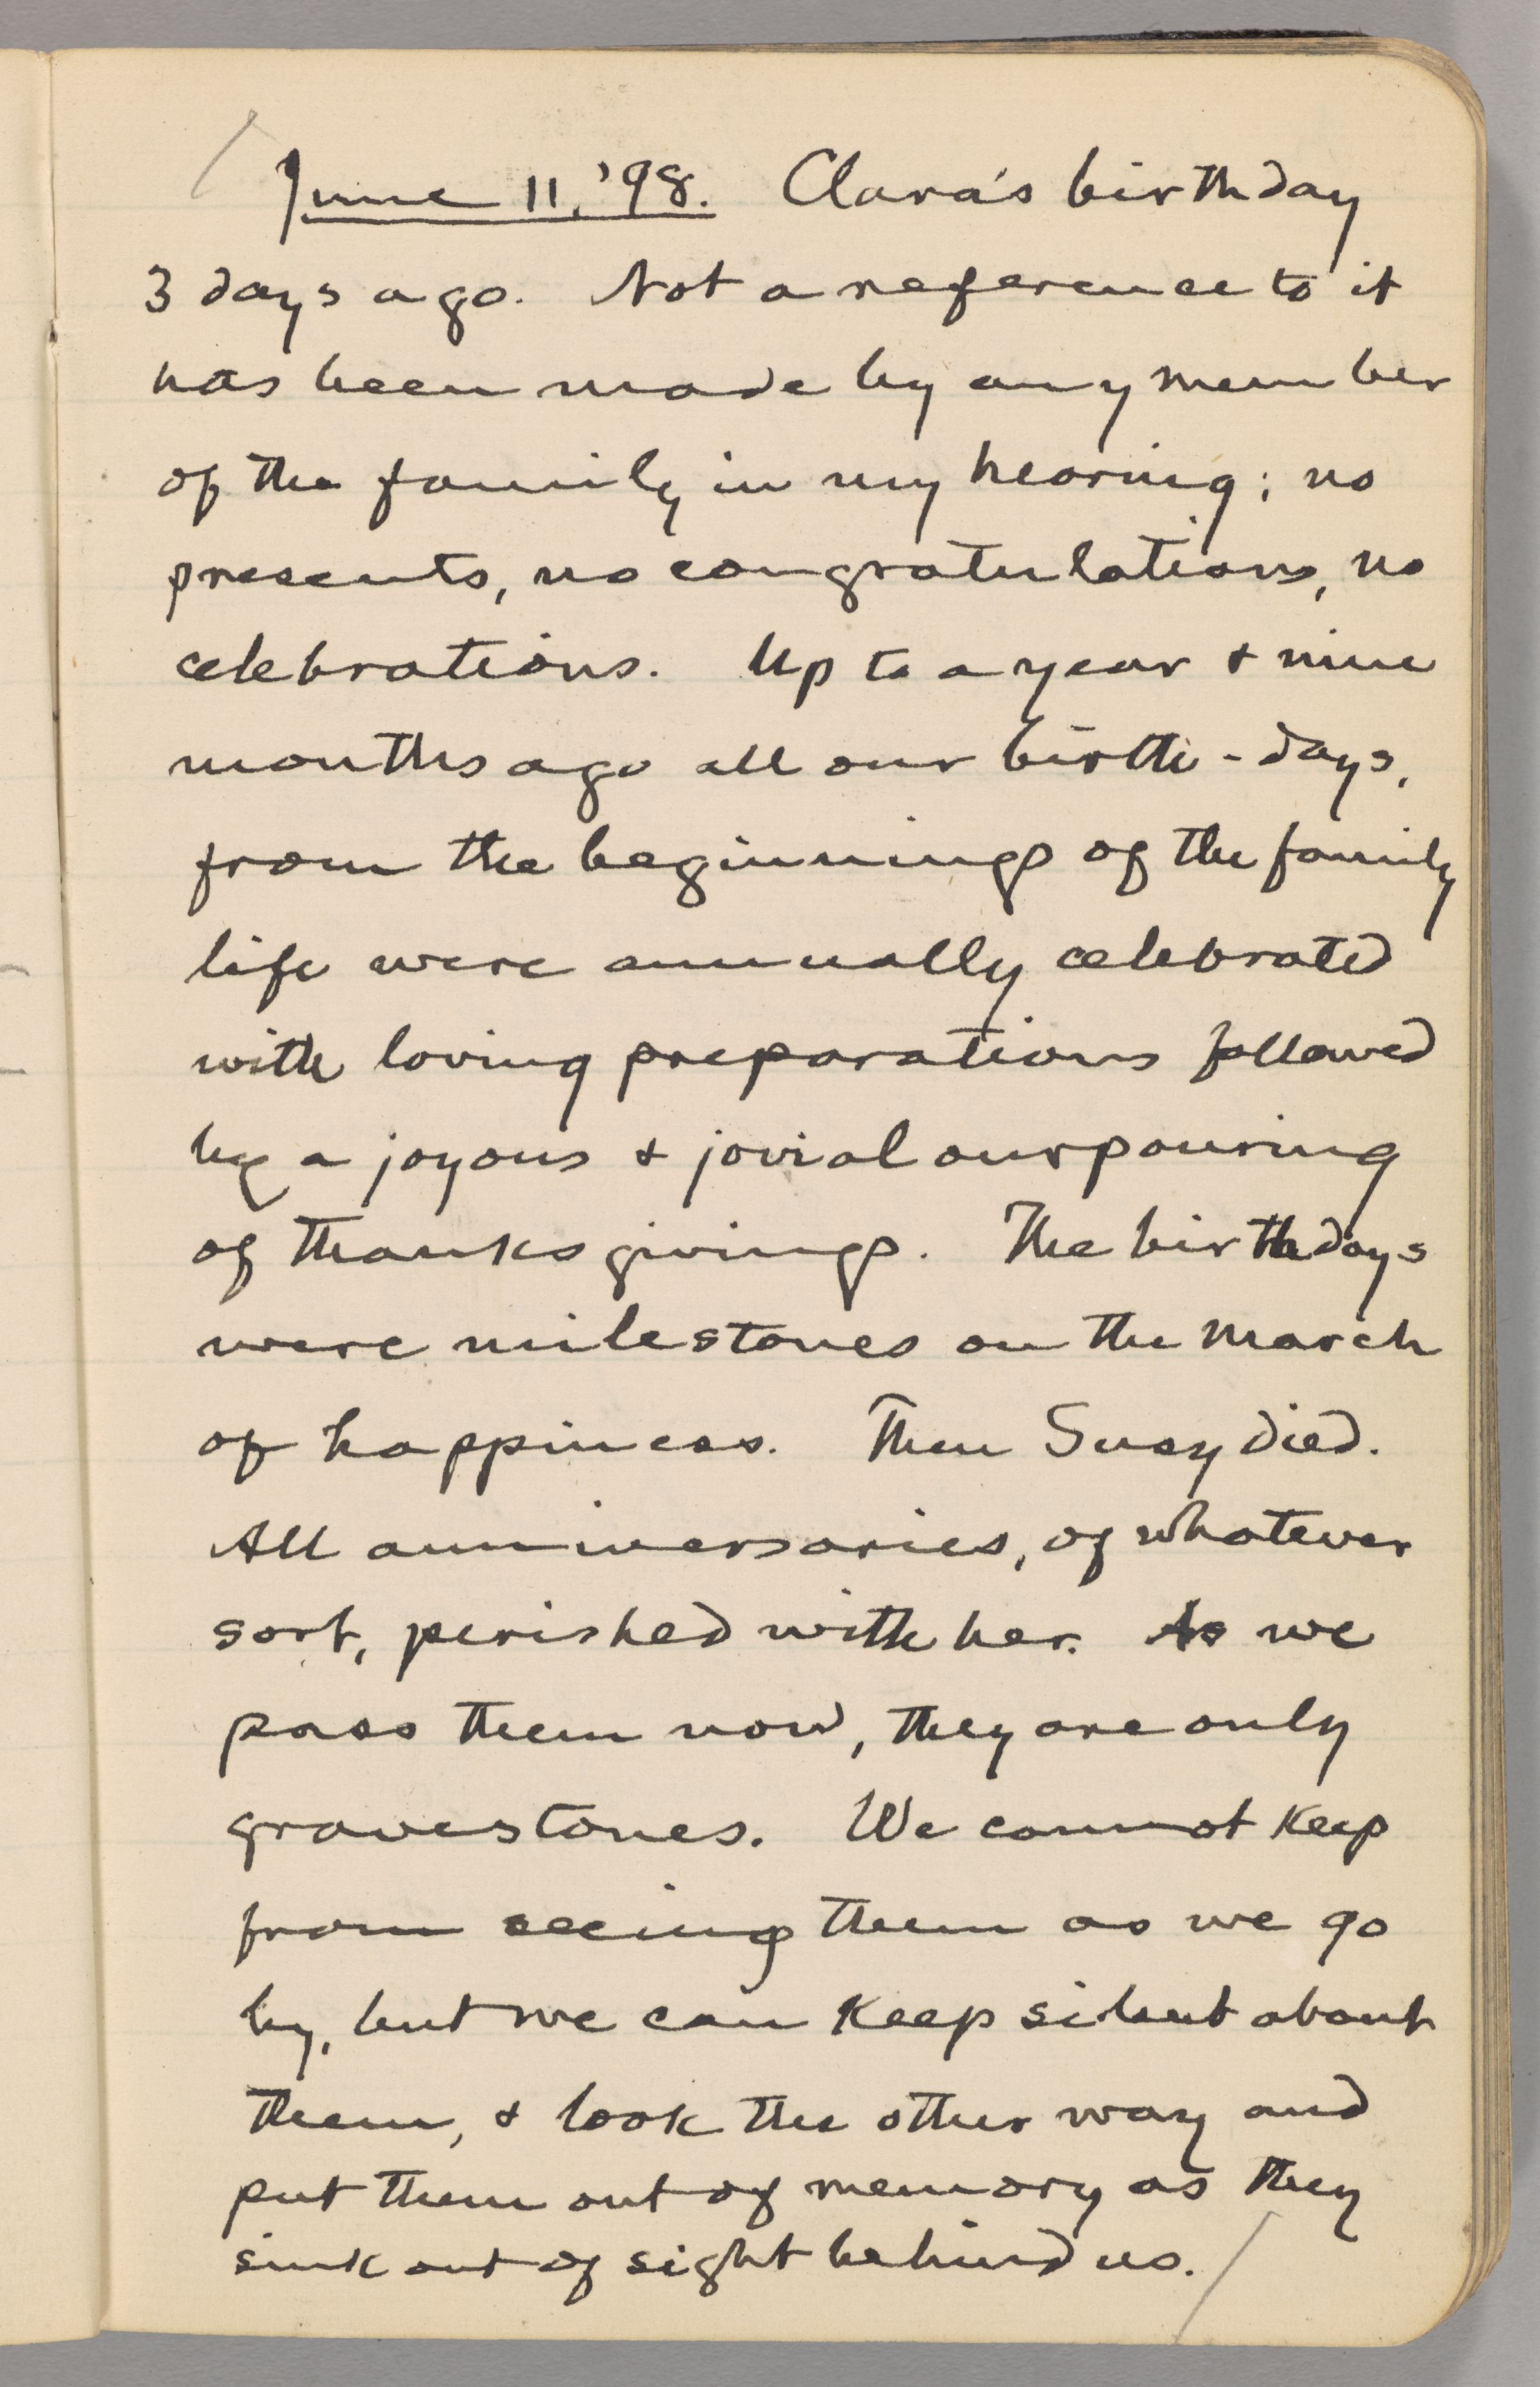 June 11, '98. Clara's birthday
3 days ago. Not a reference to it
has been made by any member
of the family in my hearing; no
presents, no congratulations, no
celebrations. Up to a year & nine
months ago all our birth-days,
from the beginning of the family
life were annually celebrated
with loving preparations followed
by a joyous & jovial ourpouring
of thanksgivings. The birthdays
were milestones on the march
of happiness. Then Susy died.
All anniversaries, of whatever
sort, perished with her. As we
pass them now, they are only
gravestones. We cannot keep
from seeing them as we go
by, but we can keep silent about
them, & look the other way and
put them out of memory as they
sink out of sight behind us.